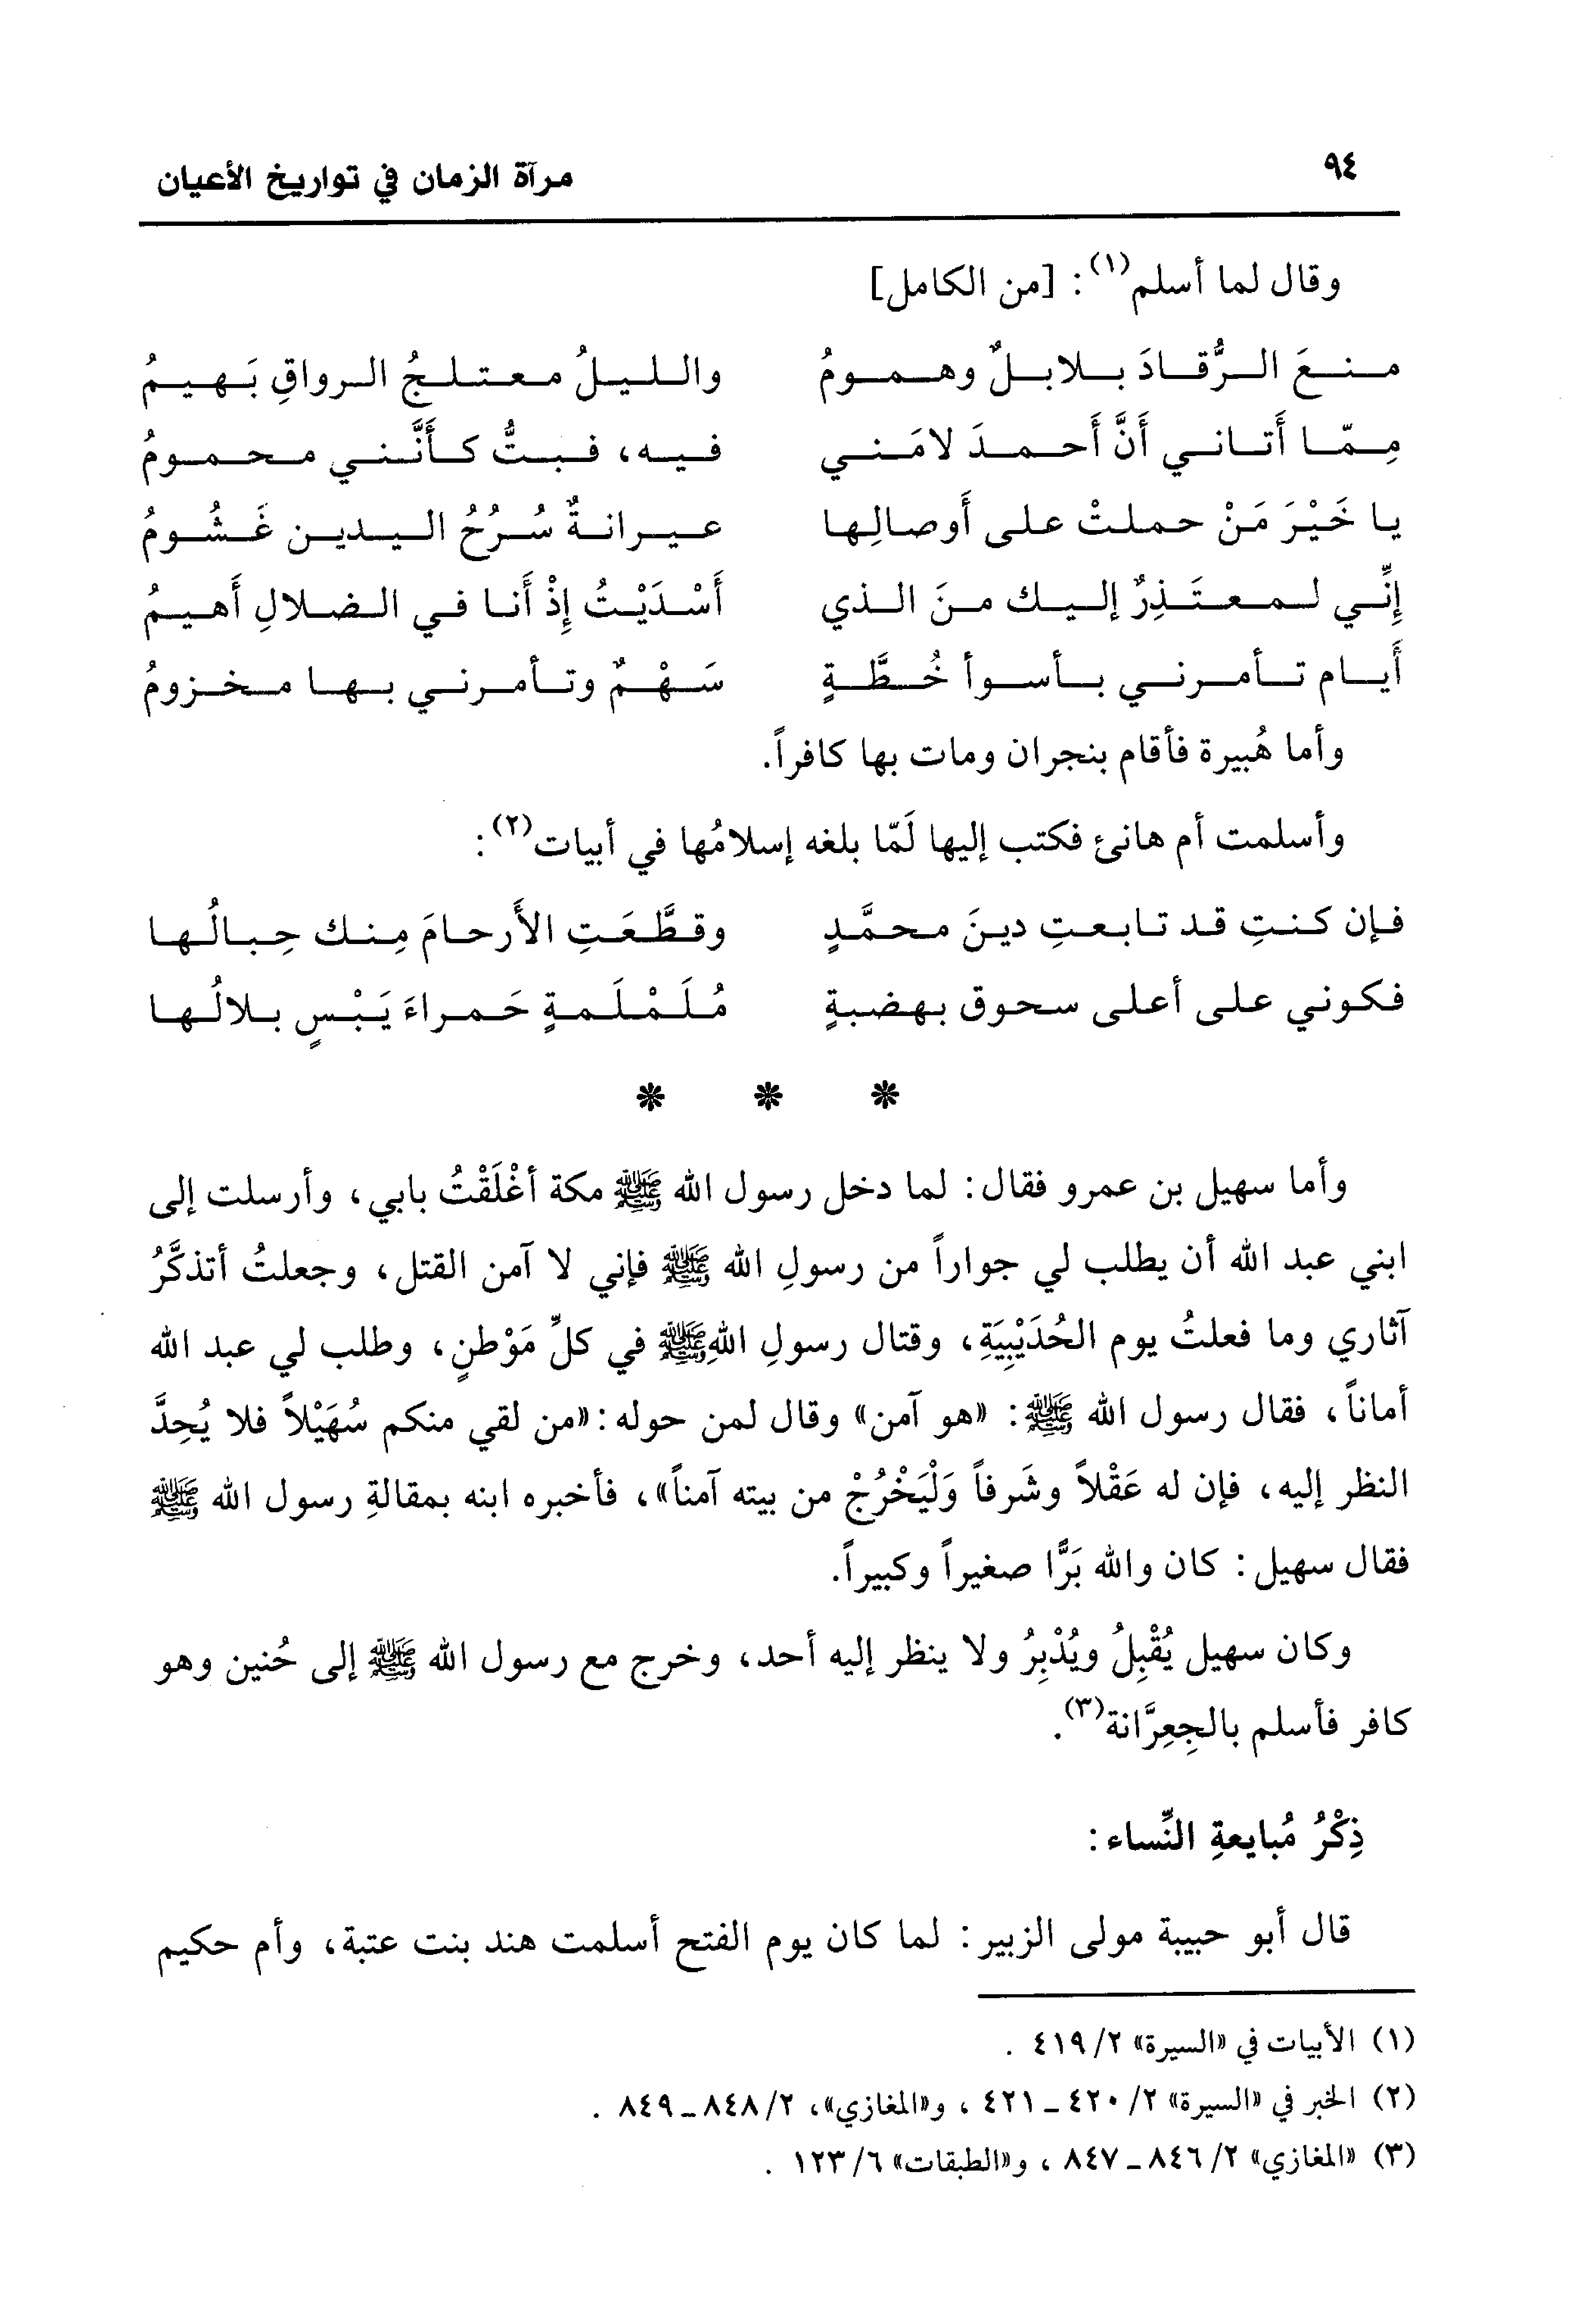 ٩٤
مرآة الزمان في تواريخ الأعيان
وقال لما أسلم(١): [من الكامل]
منعَ الرُّقادَ بلابلٌ وهمومُ والليلُ معتلجُ الرواقِ بَهيمُ
مِمّا أَتاني أَنَّ أَحمدَ لامَني فيه، فبتُّ كأَنَّني محمومُ
يا خَيْرَ مَنْ حملتْ على أَوصالِها عيرانةٌ سُرُحُ اليدين غَشُومُ
إِنِّي لمعتَذِرٌ إليك منَ الذي أَسْدَيْتُ إِذْ أَنا في الضلالِ أَهيمُ
أَيام تأمرني بأسوأ خُطَّةٍ سَهْمٌ وتأمرني بها مخزومُ
وأما هُبيرة فأقام بنجران ومات بها كافراً.
وأسلمت أم هانئ فكتب إليها لَمّا بلغه إسلامُها في أبيات(٢):
فإن كنتِ قد تابعتِ دينَ محمَّدٍ وقطَّعَتِ الأَرحامَ مِنك حِبالُها
فكوني على أعلى سحوق بهضبةٍ مُلَمْلَمةٍ حَمراءَ يَبْسٍ بلالُها
* * *
وأما سهيل بن عمرو فقال: لما دخل رسول الله ﷺ مكة أغْلَقْتُ بابي، وأرسلت إلى
ابني عبد الله أن يطلب لي جواراً من رسولِ الله ﷺ فإني لا آمن القتل، وجعلتُ أتذكَّرُ
آثاري وما فعلتُ يوم الحُدَيْبِيَةِ، وقتال رسولِ اللهِ ﷺ في كلِّ مَوْطنٍ، وطلب لي عبد الله
أماناً، فقال رسول الله ﷺ: «هو آمن» وقال لمن حوله: «من لقي منكم سُهَيْلاً فلا يُحِدَّ
النظر إليه، فإن له عَقْلاً وشَرفاً وَلْيَخْرُجْ من بيته آمناً»، فأخبره ابنه بمقالةِ رسول الله ﷺ
فقال سهيل: كان والله بَرًّا صغيراً وكبيراً.
وكان سهيل يُقْبِلُ ويُدْبِرُ ولا ينظر إليه أحد، وخرج مع رسول الله ﷺ إلى حُنين وهو
كافر فأسلم بالجِعِرَّانة(٣).
ذِكْرُ مُبايعةِ النِّساء:
قال أبو حبيبة مولى الزبير: لما كان يوم الفتح أسلمت هند بنت عتبة، وأم حكيم
(١) الأبيات في «السيرة» ٢/ ٤١٩ .
(٢) الخبر في «السيرة» ٢/ ٤٢٠ ــ ٤٢١ ، و«المغازي»، ٢/ ٨٤٨ ــ ٨٤٩ .
(٣) «المغازي» ٢/ ٨٤٦ ــ ٨٤٧ ، و«الطبقات» ٦/ ١٢٣ .